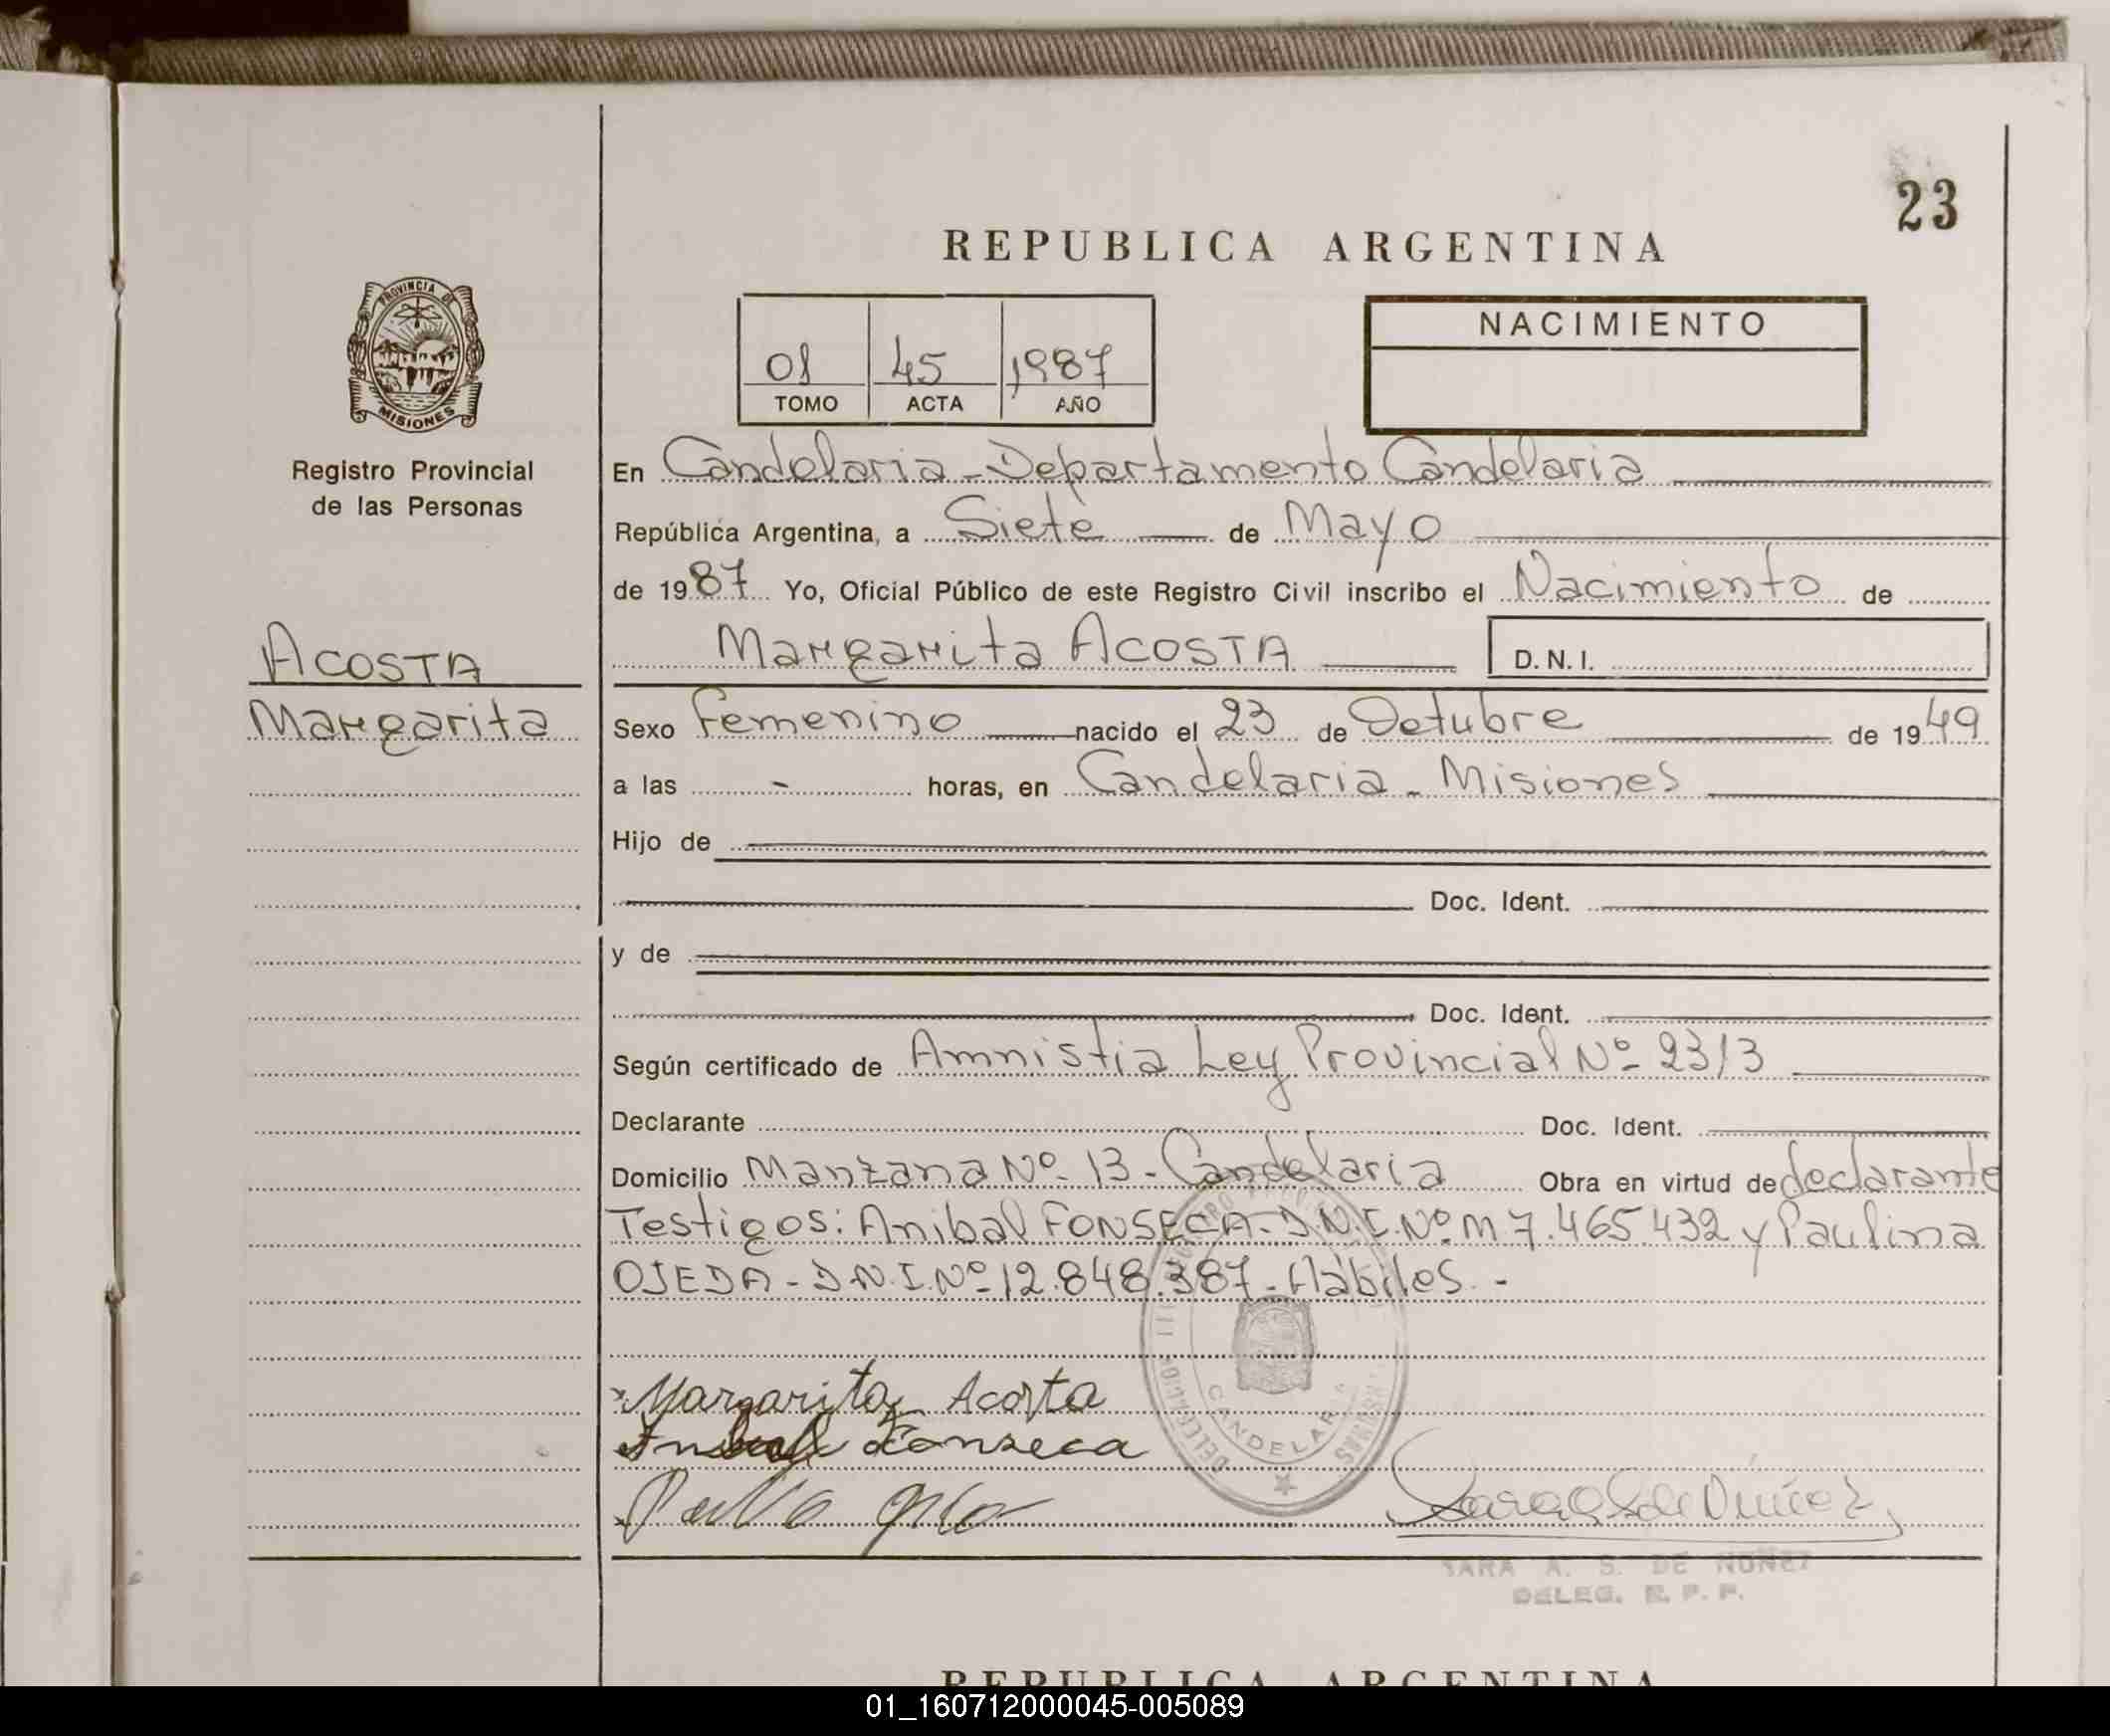 23
REPUBLICA ARGENTINA
PROVINCIA DE
MISIONES
Registro Provincial
de las Personas
01 45 1987
TOMO ACTA AÑO
NACIMIENTO
En Candelaria - Departamento Candelaria
República Argentina, a Siete de Mayo
de 1987 Yo, Oficial Público de este Registro Civil inscribo el Nacimiento de
Margarita ACOSTA D.N.I.
ACOSTA
Margarita
Sexo Femenino nacido el 23 de Octubre de 1949
a las - horas, en Candelaria - Misiones
Hijo de
Doc. Ident.
y de
Doc. Ident.
Según certificado de Amnistia Ley Provincial Nº 2313
Declarante Doc. Ident.
Domicilio Manzana Nº 13 - Candelaria Obra en virtud de declarante
Testigos: Anibal FONSECA - D.N.I. Nº M 7.465.432 y Paulina
OJEDA - D.N.I. Nº 12.848.387 - Hábiles. -
Margarita Acosta
Fonseca
CANDELARIA
SARA A. S. DE NUÑEZ
DELEG. R. P. P.
REPUBLICA ARGENTINA
01_160712000045-005089